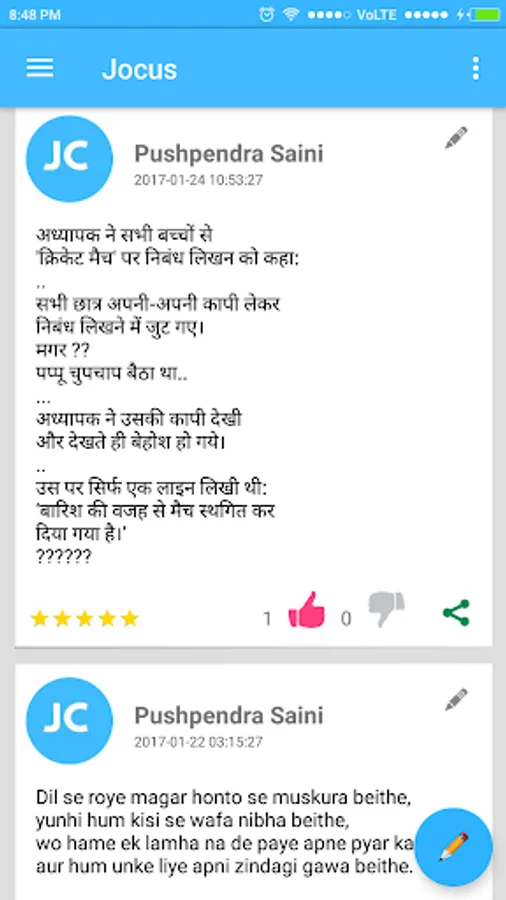 8:48 PM VoLTE
Jocus
JC
Pushpendra Saini
2017-01-24 10:53:27
अध्यापक ने सभी बच्चों से
'क्रिकेट मैच' पर निबंध लिखन को कहा:
..
सभी छात्र अपनी-अपनी कापी लेकर
निबंध लिखने में जुट गए।
मगर ??
पप्पू चुपचाप बैठा था..
...
अध्यापक ने उसकी कापी देखी
और देखते ही बेहोश हो गये।
..
उस पर सिर्फ एक लाइन लिखी थी:
'बारिश की वजह से मैच स्थगित कर
दिया गया है।'
??????
1 0
JC
Pushpendra Saini
2017-01-22 03:15:27
Dil se roye magar honto se muskura beithe,
yunhi hum kisi se wafa nibha beithe,
wo hame ek lamha na de paye apne pyar ka
aur hum unke liye apni zindagi gawa beithe.